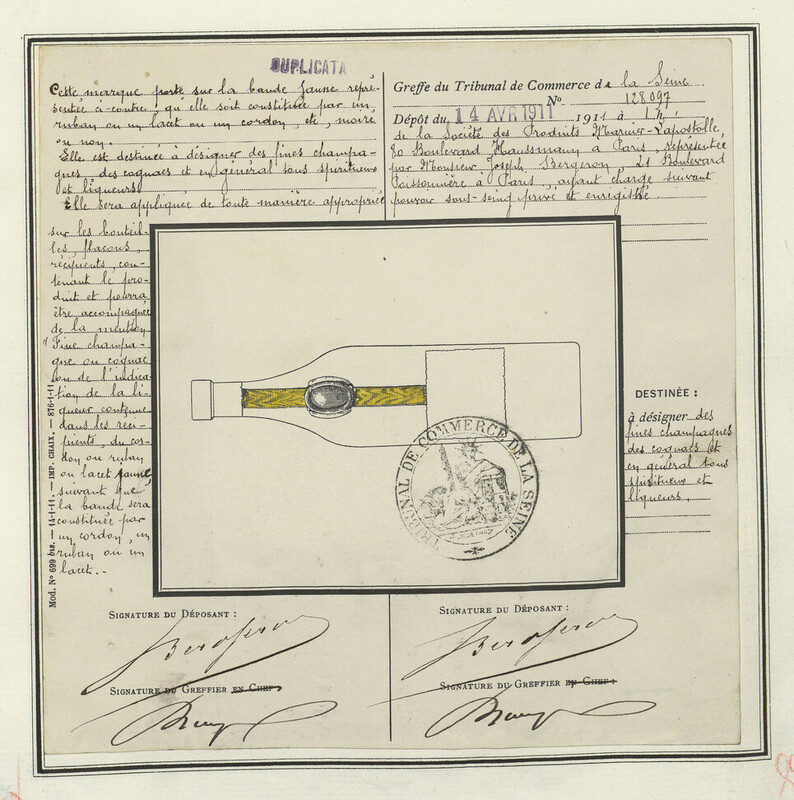 DUPLICATA
Cette marque porte sur la bande jaune repré-
sentée ci-contre, qu'elle soit constituée par un
ruban ou un lacet ou un cordon, etc, moiré
ou non.
Elle est destinée à désigner des fines champa-
gnes, des cognacs et en général tous spiritueux
et liqueurs
Elle sera appliquée de toute manière appropriée
sur les bouteil-
les, flacons,
récipients, con-
tenant le pro-
duit et pourra
être accompagnée
de la mention
"Fine champa-
gne ou cognac
ou de l'indica-
tion de la li-
queur contenue
dans les réci-
pients, du cor-
don ou ruban
ou lacet jaune
suivant que
la bande sera
constituée par
un cordon, un
ruban ou un
lacet.-
Mod. No 699 bis. — 14-1-11. — IMP. CHAIX. — 876-1-11
Greffe du Tribunal de Commerce de la Seine
No 128097
Dépôt du 14 AVR 1911 1911 à 1 h.
de la Société des Produits Marnier-Lapostolle,
80 Boulevard Haussmann à Paris, représentée
par Monsieur Joseph Bergeron, 21 Boulevard
Poissonnière à Paris, ayant charge suivant
pouvoir sous-seing privé et enregistré.
TRIBUNAL DE COMMERCE DE LA SEINE
DESTINÉE :
à désigner des
fines champagnes
des cognacs et
en général tous
spiritueux et
liqueurs.
SIGNATURE DU DÉPOSANT :
Bergeron
SIGNATURE DU GREFFIER EN CHEF :
SIGNATURE DU DÉPOSANT :
Bergeron
SIGNATURE DU GREFFIER EN CHEF :